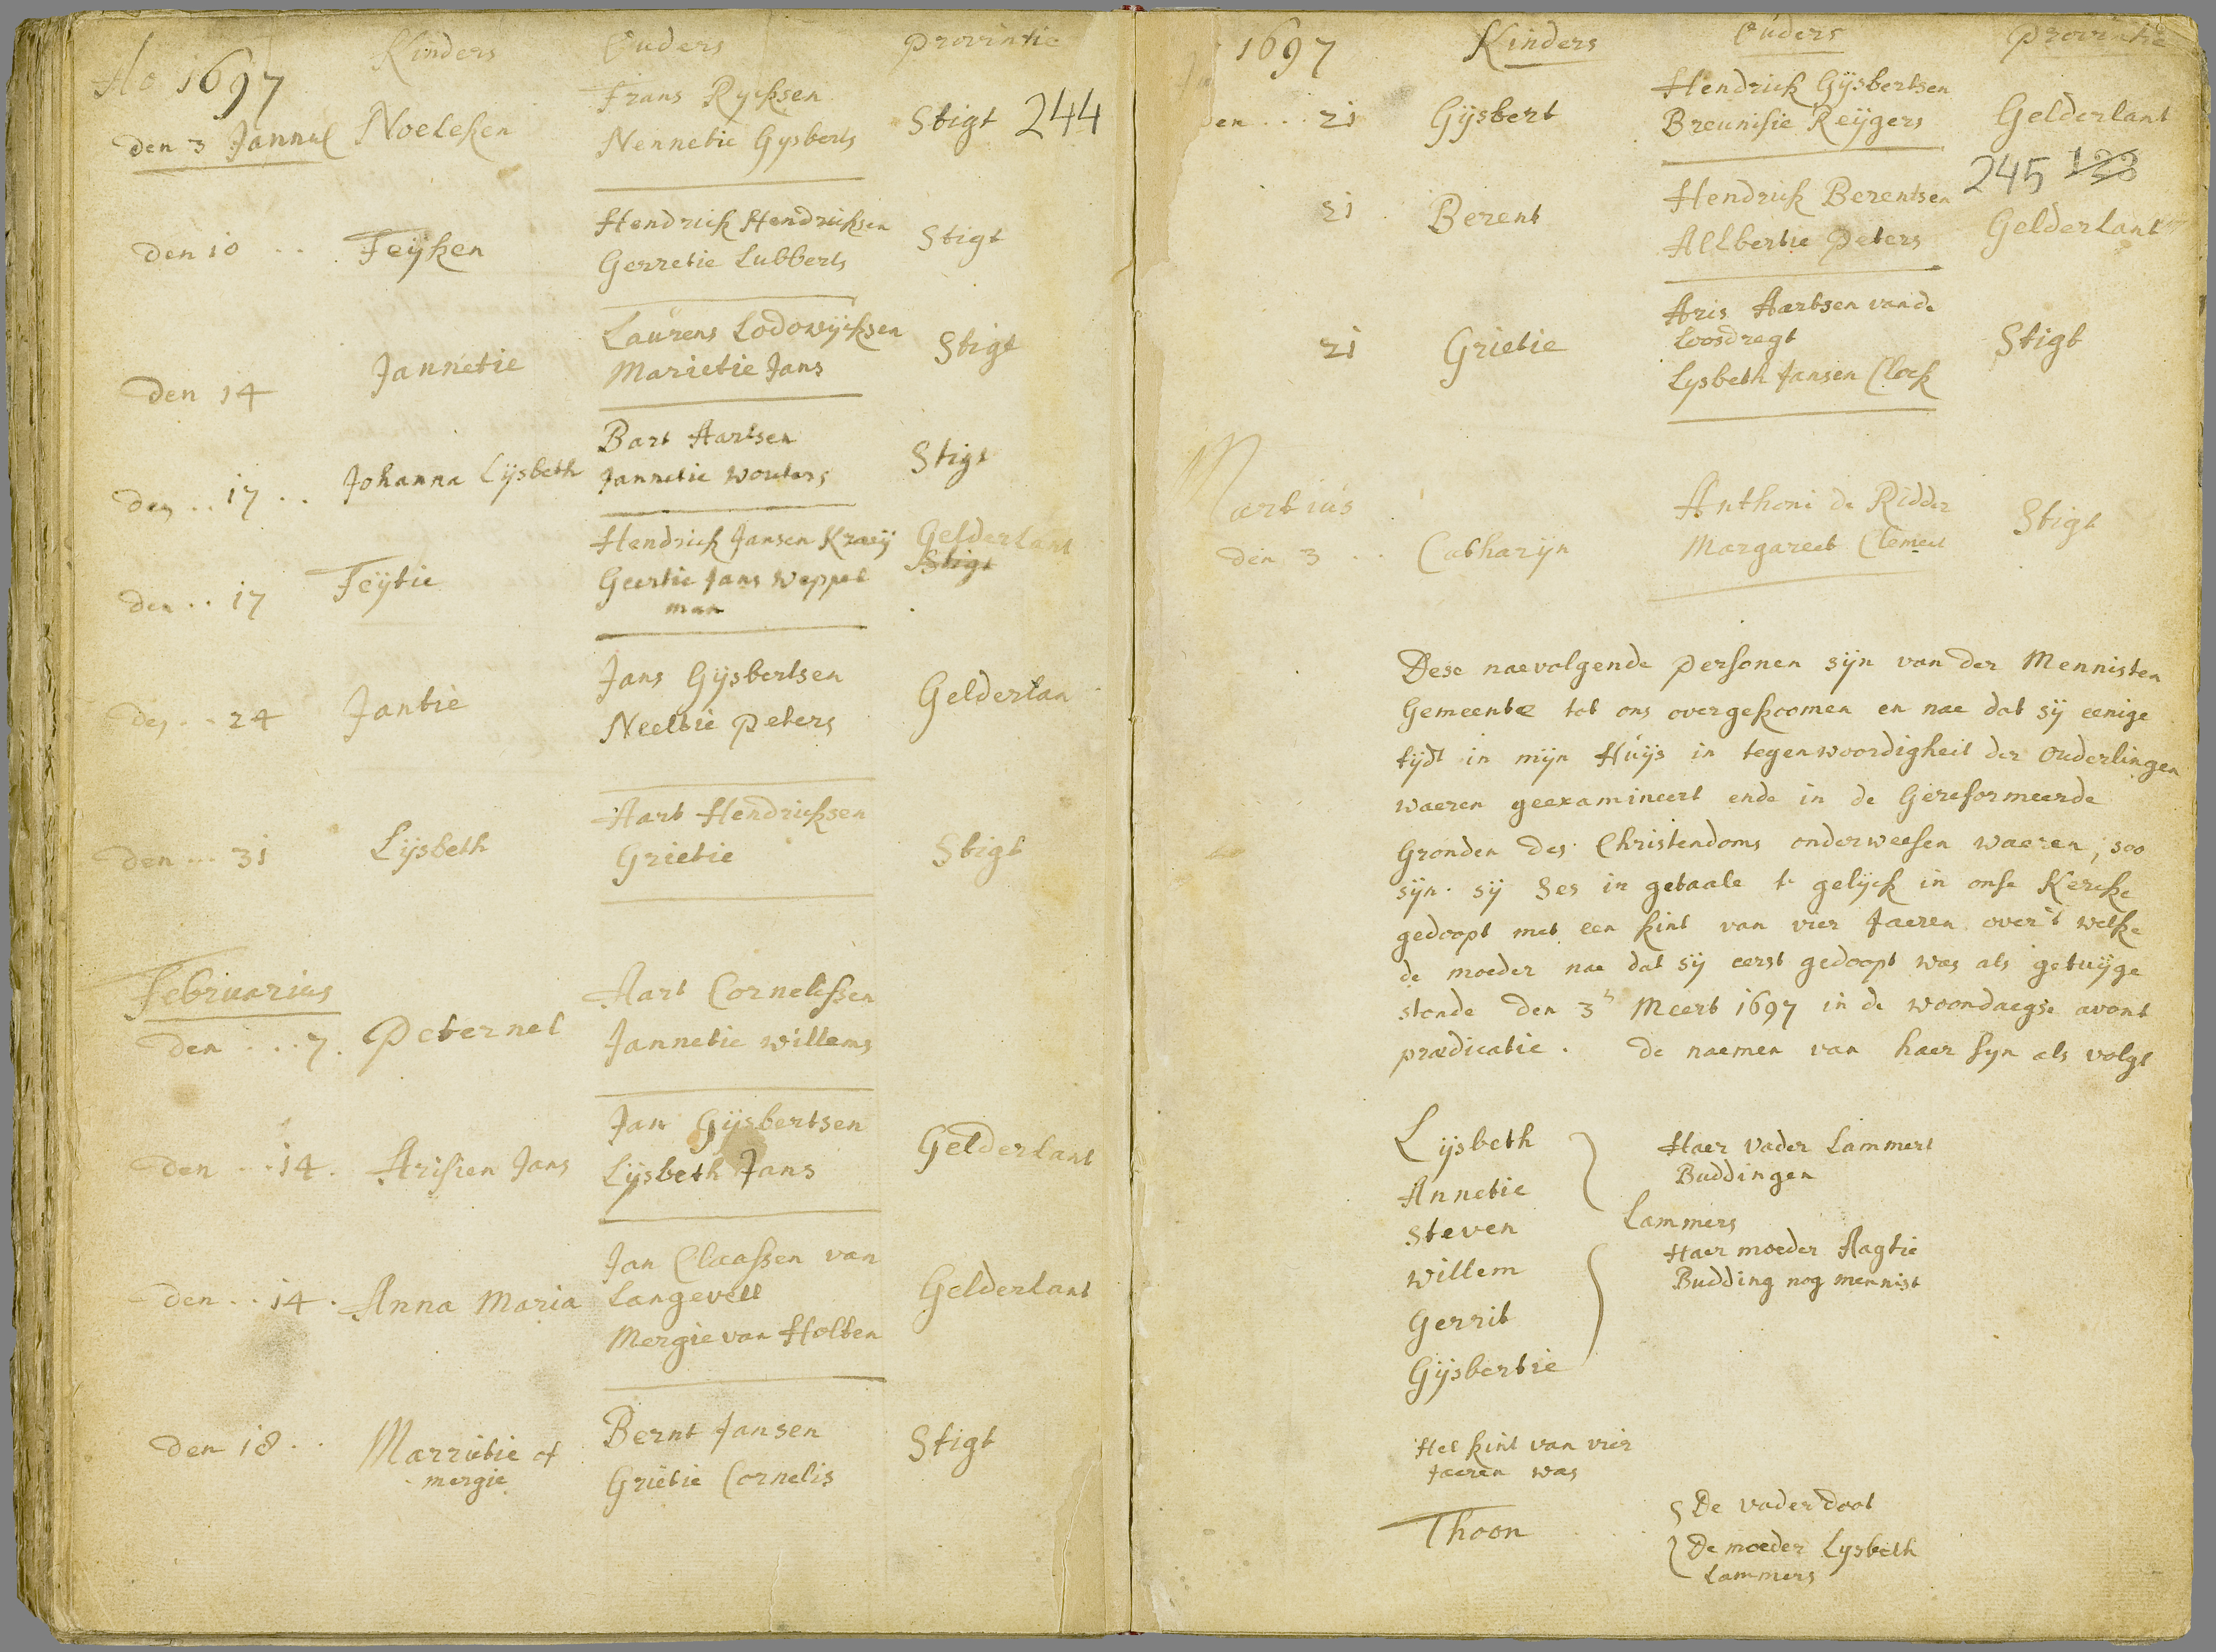 Ao 1697 Kinders Ouders Provintie
den 3 Januaʳ Noeleken Frans Rycksen
Nennetie Gysberts Stigt 244
den 10 .. Feyken Hendrick Hendricksen
Gerretie Lubberts Stigt
den 14 Jannetie Laurens Lodowijcksen
Marietie Jans Stigt
den .. 17 .. Johanna Lijsbeth Bart Aartsen
Jannetie Wouters Stigt
den .. 17 Feijtie Hendrick Jansen Kraeij Gelderlant
Geertie Jans Weppel Stigt
man
den .. 24 Jantie Jans Gijsbertsen
Neeltie Peters Gelderlan
den ... 31 Lijsbeth Aart Hendricksen
Grietie Stigt
Februarius
den .... 7. Peternel Aart Cornelissen
Jannetie Willems
den ... 14. Arisien Jans Jan Gijsbertsen
Lijsbeth Jans Gelderlant
den .. 14. Anna Maria Jan Claassen van
Langevell
Mergie van Holten Gelderlant
den 18 .. Marrietie of
mergie Bernt Jansen
Grietie Cornelis Stigt
1697 Kinders Ouders Provintie
den ... 21 Gijsbert Hendrick Gijsbertsen
Breunisie Reijgers Gelderlant
245 123
21 . Berent Hendrick Berentsen
Allbertie Peters Gelderlant
21 Grietie Aris Aartsen vande
Loosdregt
Lysbeth Jansen Clock Stigt
Martius
den 3 .. Catharijn Anthoni de Ridder
Margareet Clement Stigt
Dese naevolgende Personen sijn van der Mennisten
Gemeente tot ons overgekoomen en nae dat sij eenige
tijdt in mijn Huijs in tegenwoordigheit der Ouderlingen
waeren geexamineert ende in de Gereformeerde
Gronden des Christendoms onderweesen waeren, soo
sijn sij Ses in getaale te gelijck in onse Kercke
gedoopt met een kint van vier Jaeren over 't welke
de moeder nae dat sij eerst gedoopt was als getuijge
stonde den 3 Meert 1697 in de woondaegse avont
praedicatie. De naemen van haer syn als volgt
Lijsbeth Haer Vader Lammert
Buddingen
Annetie
Steven Lammers
Willem Haer moeder Aagtie
Budding nog mennist
Gerrit
Gijsbertie
Het kint van vier
Jaeren was
Thoon De vader doot
De moeder Lysbeth
Lammers